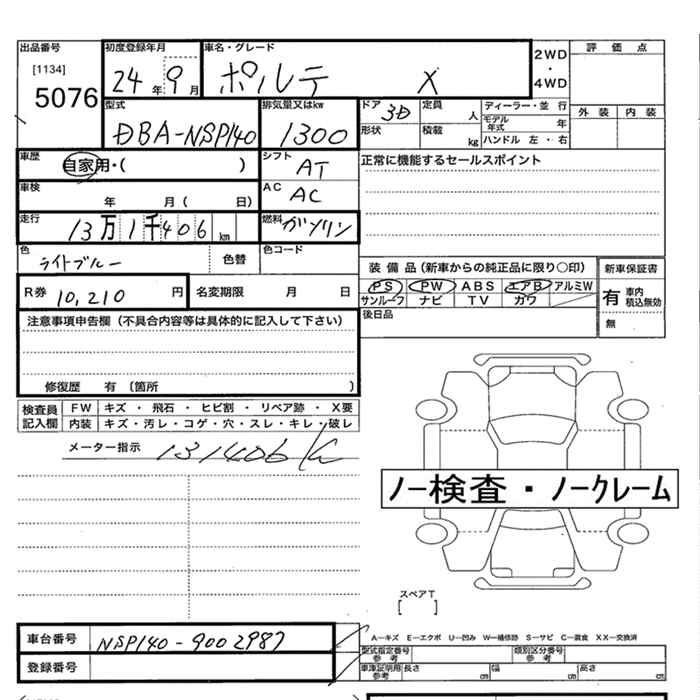 出品番号 初度登録年月 車名・グレード 2WD・4WD 評価点
[1134] 5076 24年 9月 ポルテ X 外装 内装
型式 排気量又はkw ドア 3D 定員 人 ディーラー・並行
DBA-NSP140 1300 形状 積載 kg モデル年式 年
ハンドル 左・右
車歴 自家用・( ) シフト AT 正常に機能するセールスポイント
車検 年 月( 日) AC AC
走行 13万1千406km 燃料 ガソリン
色 ライトブルー 色替 色コード
装備品(新車からの純正品に限り○印) 新車保証書
PS PW ABS エアB アルミW 有 車内積込無効
サンルーフ ナビ TV カワ 無
R券 10,210円 名変期限 月 日 後日品
注意事項申告欄(不具合内容等は具体的に記入して下さい)
修復歴 有 〔箇所 〕
検査員記入欄 FW キズ・飛石・ヒビ割・リペア跡・X要
内装 キズ・汚レ・コゲ・穴・スレ・キレ・破レ
メーター指示 131406 K
ノー検査・ノークレーム
スペアT
[ ]
車台番号 NSP140-9002987
登録番号
A―キズ E―エクボ U―凹み W―補修跡 S―サビ C―腐食 XX―交換済
型式指定番号 参考 類別区分番号 参考
車庫証明用 参考 長さ cm 幅 cm 高さ cm